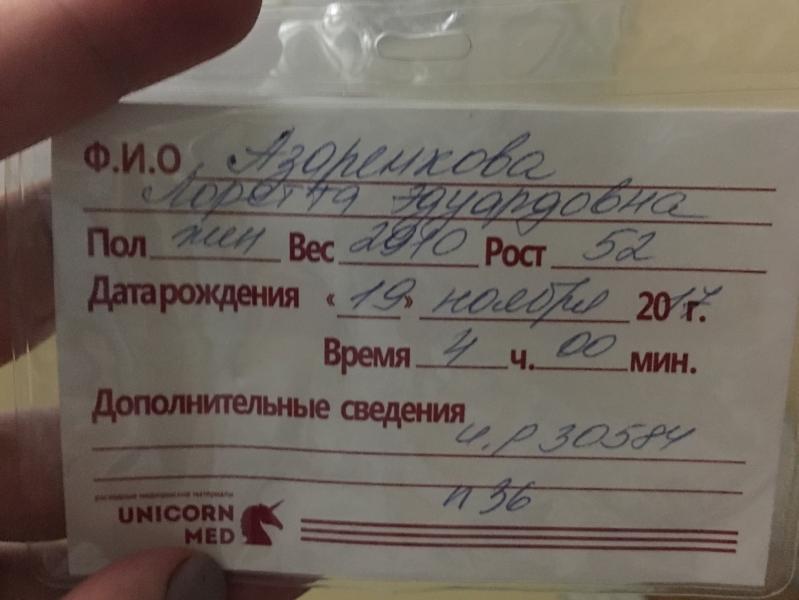 Ф.И.О Азаренкова
Лоретта Эдуардовна
Пол жен Вес 2970 Рост 52
Дата рождения «19» ноября 2017 г.
Время 4 ч. 00 мин.
Дополнительные сведения
и.р 30584
п 36
расходные медицинские материалы
UNICORN
MED